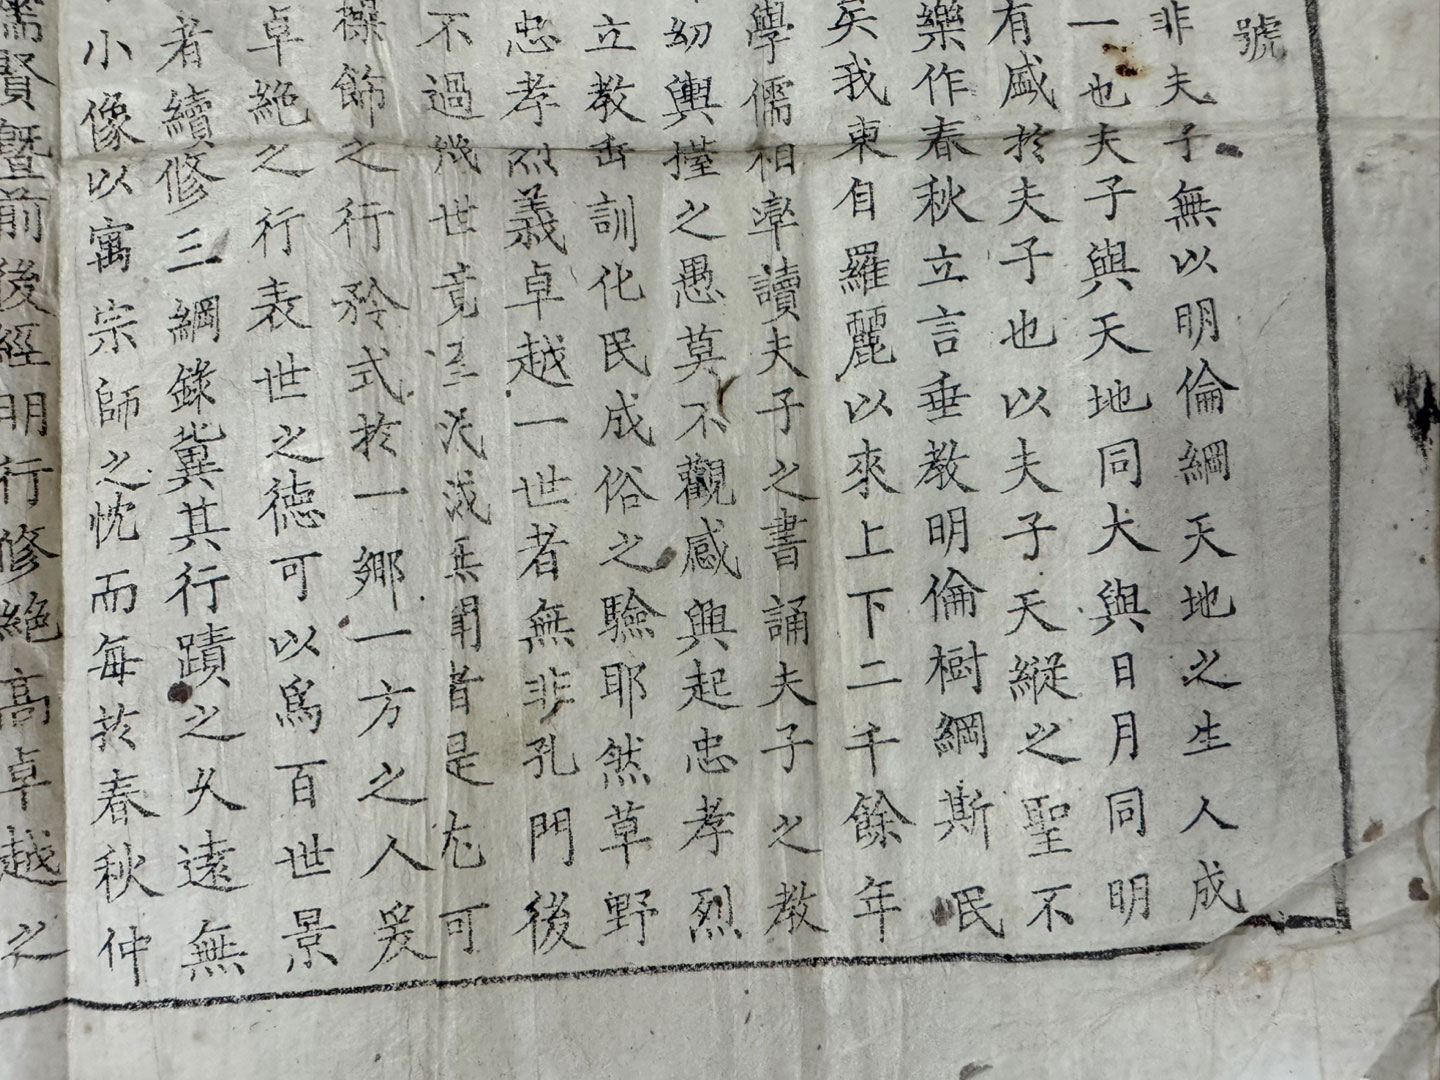 號
非夫子無以明倫綱天地之生人成
一也夫子與天地同大與日月同明
有盛於夫子也以夫子天縱之聖不
樂作春秋立言垂教明倫樹綱斯民
矣我東自羅麗以來上下二千餘年
學儒相率讀夫子之書誦夫子之教
幼輿擡之愚莫不觀感興起忠孝烈
立教出訓化民成俗之驗耶然草野
忠孝烈義卓越一世者無非孔門後
不過幾世竟至泯滅無聞者是尤可
操飾之行矜式於一鄉一方之人爰
卓絶之行表世之德可以爲百世景
者續修三綱錄冀其行蹟之久遠無
小像以寓宗師之忱而每於春秋仲
儒賢曁前後經明行修絶高卓越之